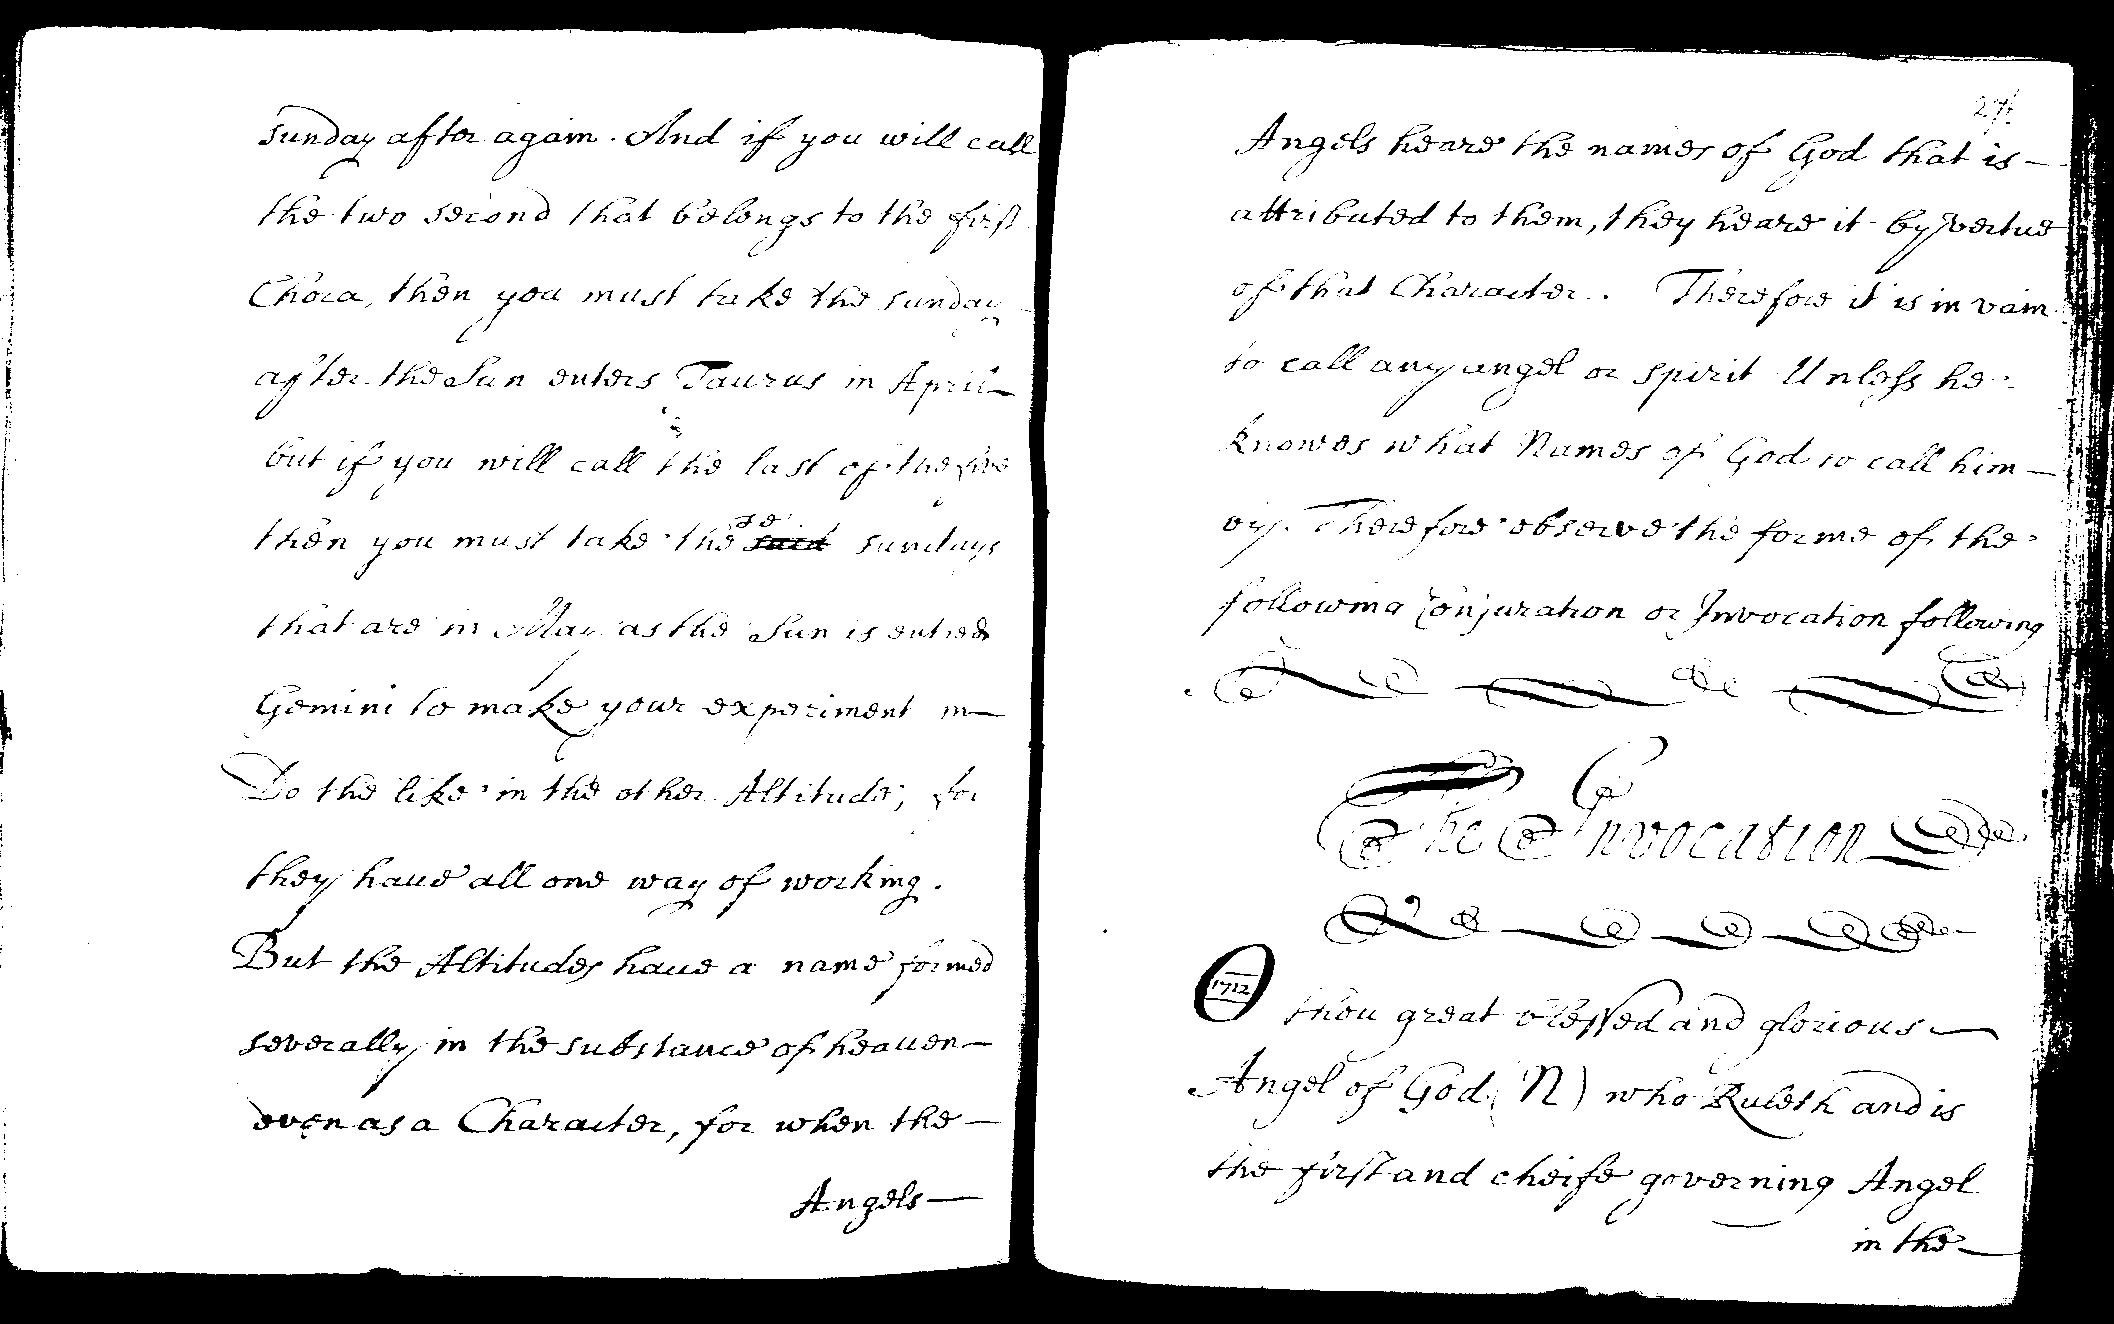 sunday after again. And if you will call
the two second that belongs to the first
Chora, then you must take the sunday
after the Sun enters Taurus in April
but if you will call the last of the five
then you must take the se sundays
that are in May as the Sun is entred
Gemini to make your experiment in
Do the like in the other Altitude, for
they haue all one way of working.
But the Altitudes haue a name formed
severally in the substance of heauen
even as a Character, for when the
Angels
27
Angels heare the names of God that is
attributed to them, they heare it by vertue
of that Character. Therefore it is in vain
to call any angel or spirit Unless he
knowes what Names of God to call him
by. Therefore observe the forme of the
following Conjuration or Invocation following
The Invocation
O 1712 thou great blessed and glorious
Angel of God (N) who Ruleth and is
the first and cheife governing Angel
in the